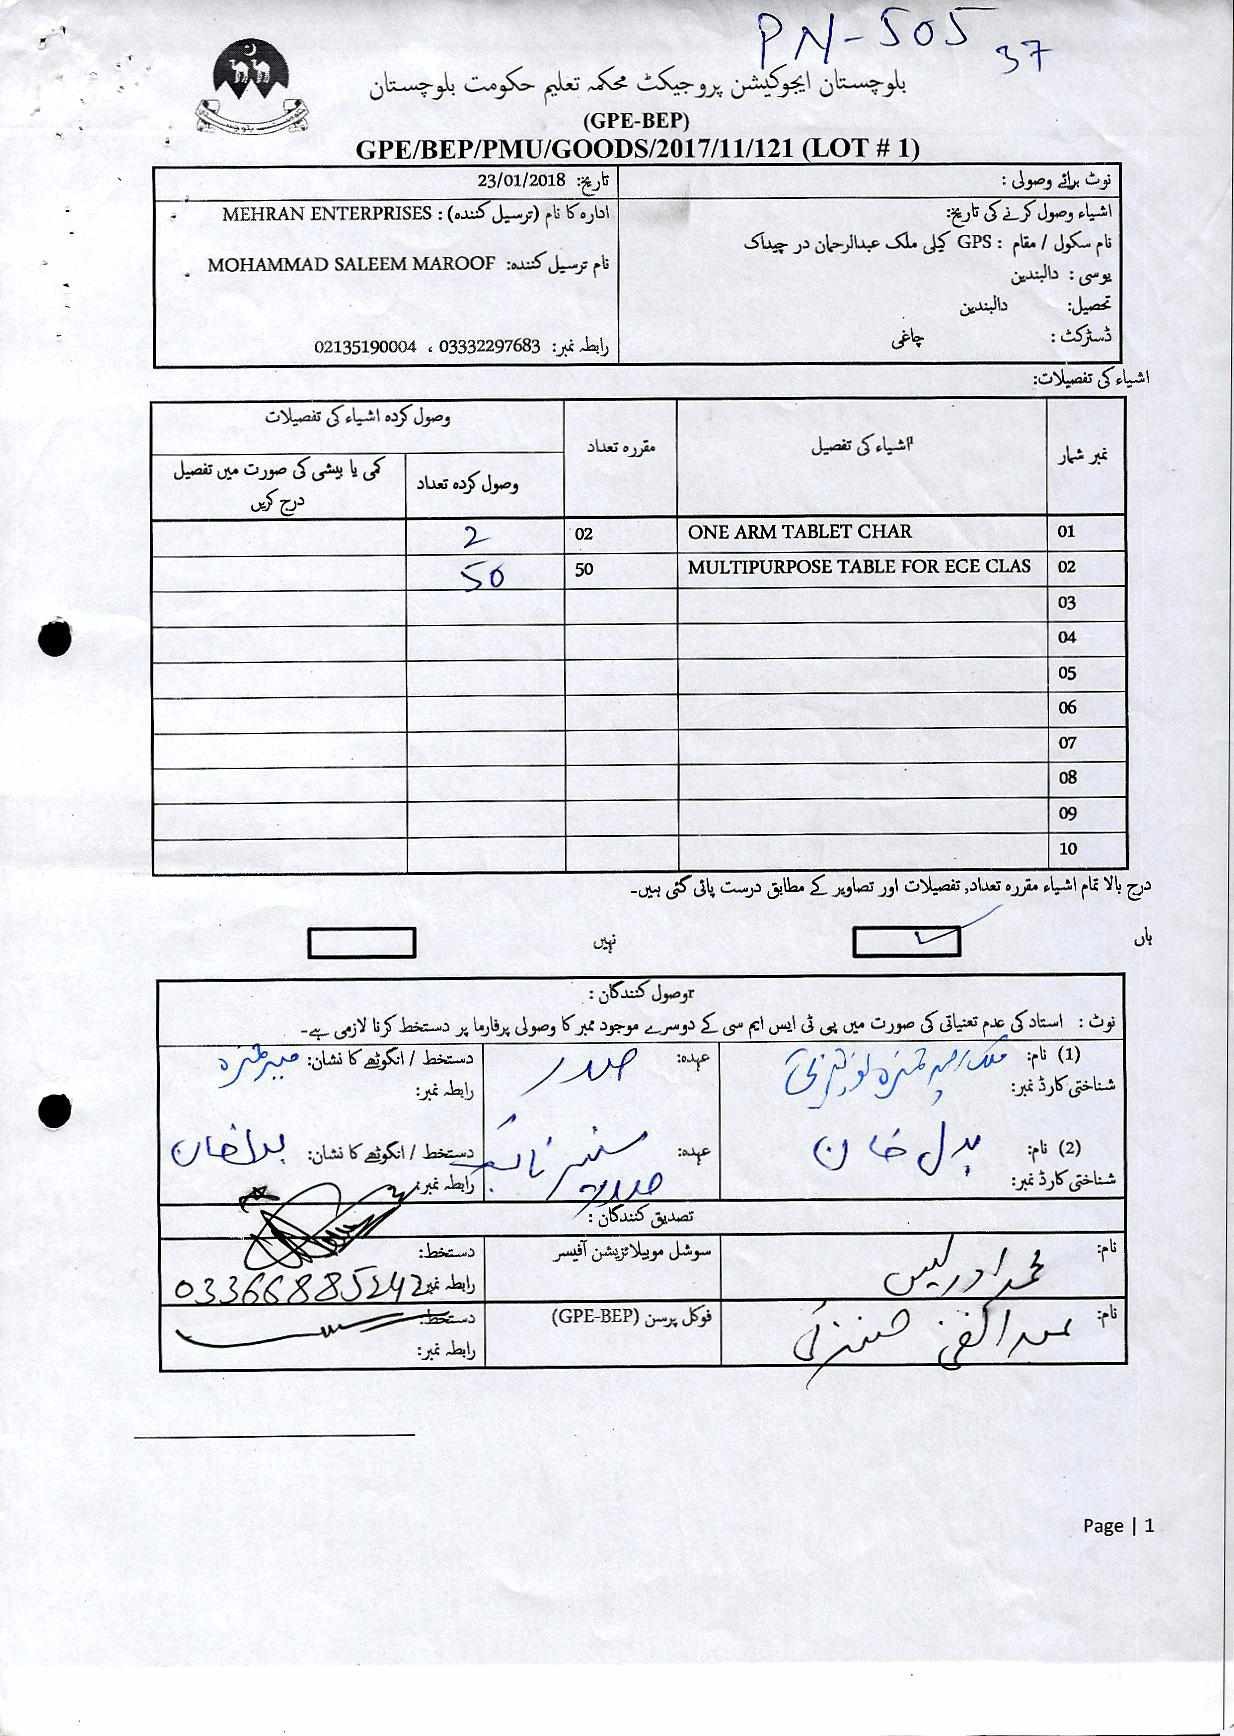 PN-505 37
بلوچستان ایجوکیشن پروجیکٹ محکمہ تعلیم حکومت بلوچستان
(GPE-BEP)
GPE/BEP/PMU/GOODS/2017/11/121 (LOT # 1)
نوٹ برائے وصولی :
تاریخ: 23/01/2018
اشیاء وصول کرنے کی تاریخ:
نام سکول / مقام : GPS کیلی ملک عبدالرحمان در چیداک
یوسی : دالبندین
تحصیل: دالبندین
ڈسٹرکٹ : چاغی
ادارہ کا نام (ترسیل کنندہ) : MEHRAN ENTERPRISES
نام ترسیل کنندہ: MOHAMMAD SALEEM MAROOF
رابطہ نمبر: 03332297683 ، 02135190004
اشیاء کی تفصیلات:
نمبر شمار اشیاء کی تفصیل مقررہ تعداد وصول کردہ اشیاء کی تفصیلات
وصول کردہ تعداد کمی یا بیشی کی صورت میں تفصیل درج کریں
01 ONE ARM TABLET CHAR 02 2
02 MULTIPURPOSE TABLE FOR ECE CLAS 50 50
03
04
05
06
07
08
09
10
درج بالا تمام اشیاء مقررہ تعداد, تفصیلات اور تصاویر کے مطابق درست پائی گئی ہیں۔
ہاں نہیں
وصول کنندگان :
نوٹ : استاد کی عدم تعنیاتی کی صورت میں پی ٹی ایس ایم سی کے دوسرے موجود ممبر کا وصولی پرفارما پر دستخط کرنا لازمی ہے۔
(1) نام: عہدہ: صدر دستخط / انگوٹھے کا نشان:
شناختی کارڈ نمبر: رابطہ نمبر:
(2) نام: بدل خان عہدہ: سنئیر نائب صدر دستخط / انگوٹھے کا نشان: بدل خان
شناختی کارڈ نمبر: رابطہ نمبر:
تصدیق کنندگان :
نام: محمد ادریس سوشل موبیلائزیشن آفیسر دستخط:
رابطہ نمبر: 03366885242
نام: عبد الغنی فوکل پرسن (GPE-BEP) دستخط:
رابطہ نمبر:
Page | 1